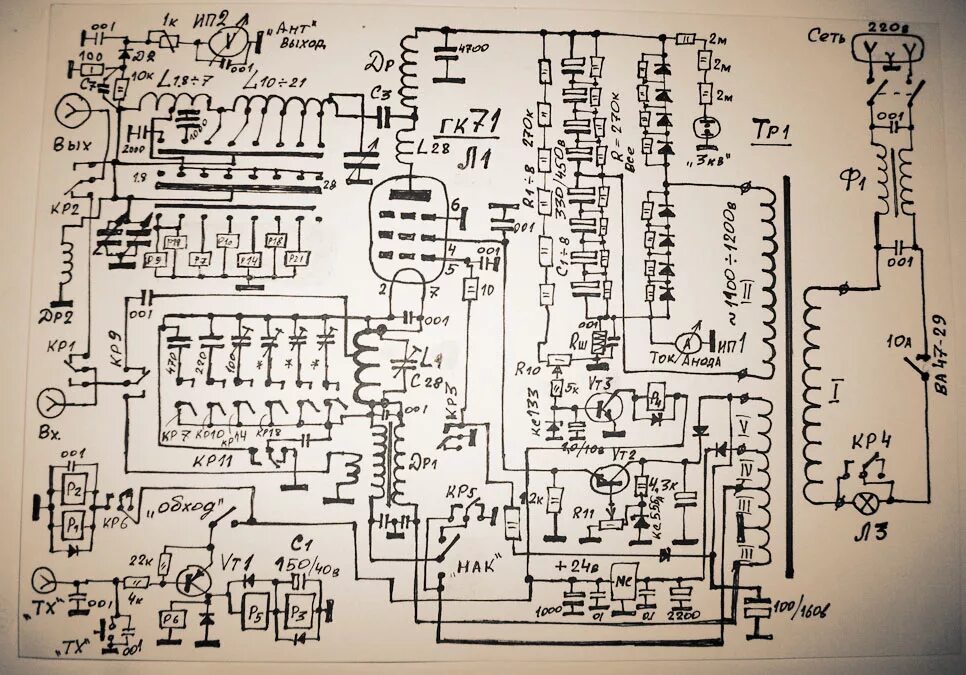 001
1к
ИП2
"Ант"
Выход
V
001
ДR
100
10к
С7
L1.8÷7
L10÷21
1000
2000
Вых
КР2
1.8
28
С3
Др
4700
L28
ГК71
Л1
6
4
5
2
7
001
001
10
001
R1÷8 270к
С1÷8 330/450в
R=270к
Все
2м
2м
2м
"3кв"
Тр1
~1900÷1200в
II
Сеть
220в
001
Ф1
001
10А
ВА47-29
I
КР4
Л3
Р19
Р9
Р10
Р7
Р14
Р18
Р21
001
Др2
КР1
КР9
Вх.
470
220
100
*
*
КР7
КР10
КР14
КР18
КР11
L1
С28
001
Др1
КР3
001
Rш
А
ИП1
Ток Анода
R10
5к
КС133
VT3
Р4
1,0/10в
VT2
2к
R11
4.3к
V
IV
III
III
001
Р2
Р1
КР6
"Обход"
КР5
"НАК"
+24в
1000
01
01
2200
100/160в
22к
4к
VT1
"ТХ"
001
"ТХ"
001
Р6
Р5
С1
150/40в
Р3